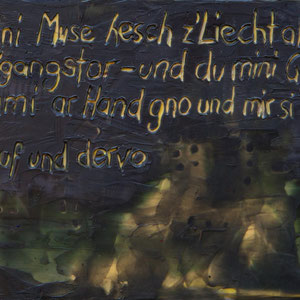 ni Muse hesch z'Liecht a
gangstor - und du mini G
mi ar Hand gno und mir si
uf und dervo